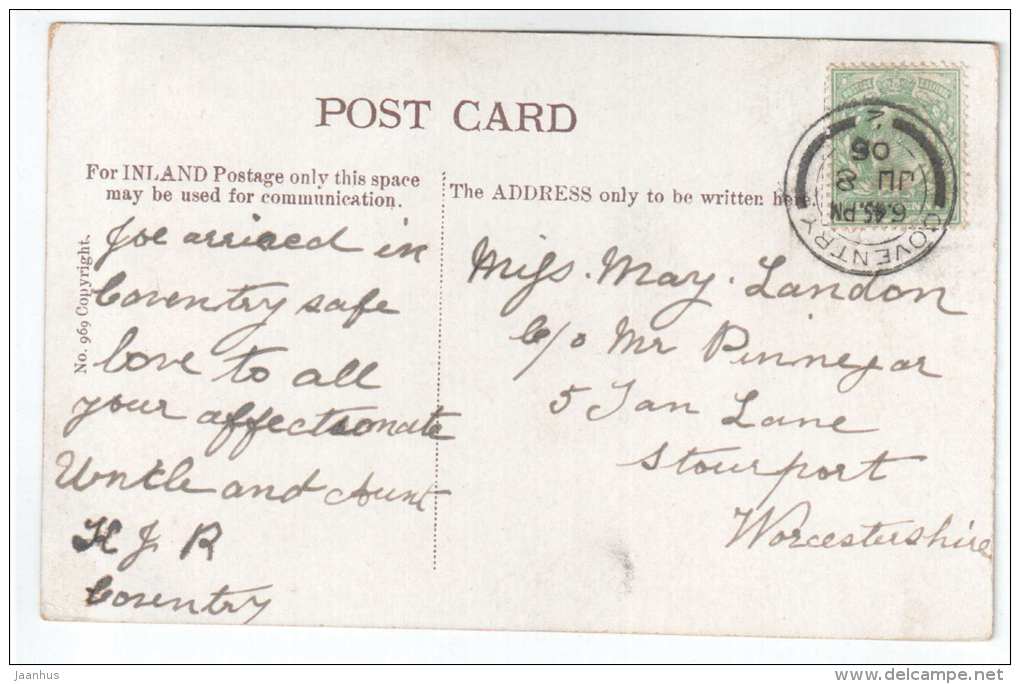 POST CARD
For INLAND Postage only this space
may be used for communication.
The ADDRESS only to be written here
No. 969 Copyright.
Joe arrived in
Coventry safe
love to all
your affectionate
Uncle and Aunt
H J R
Coventry
Miss. May. Landon
c/o Mr Pinnegar
5 Tan Lane
Stourport
Worcestershire
COVENTRY
6.45 PM
JU 8
06
Jaanhus
www.delcampe.net